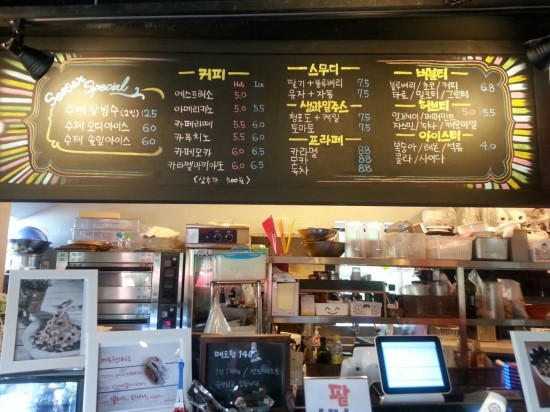 Season Special
수제 팥빙수 (2인) 12.5
수제 오디아이스 6.0
수제 솔잎아이스 6.0
커피 Hot Ice
에스프레소 5.0
아메리카노 5.0 5.5
카페라떼 5.5 6.0
카푸치노 5.5 6.0
카페모카 6.0 6.5
카라멜마끼아또 6.0 6.5
(샷추가 500원)
스무디
딸기 + 블루베리 7.5
유자 + 자몽 7.5
생과일쥬스
청포도 + 케일 7.5
토마토 7.5
프라페
카라멜 8.8
모카 8.8
녹차 8.8
버블티
블루베리 / 초코 / 커피 6.8
타로 / 밀크티 / 그린티
허브티
얼그레이 / 페퍼민트 5.5
자스민 / 녹차 / 캐모마일
아이스티
복숭아 / 레몬 / 석류 4.0
콜라 / 사이다
팥